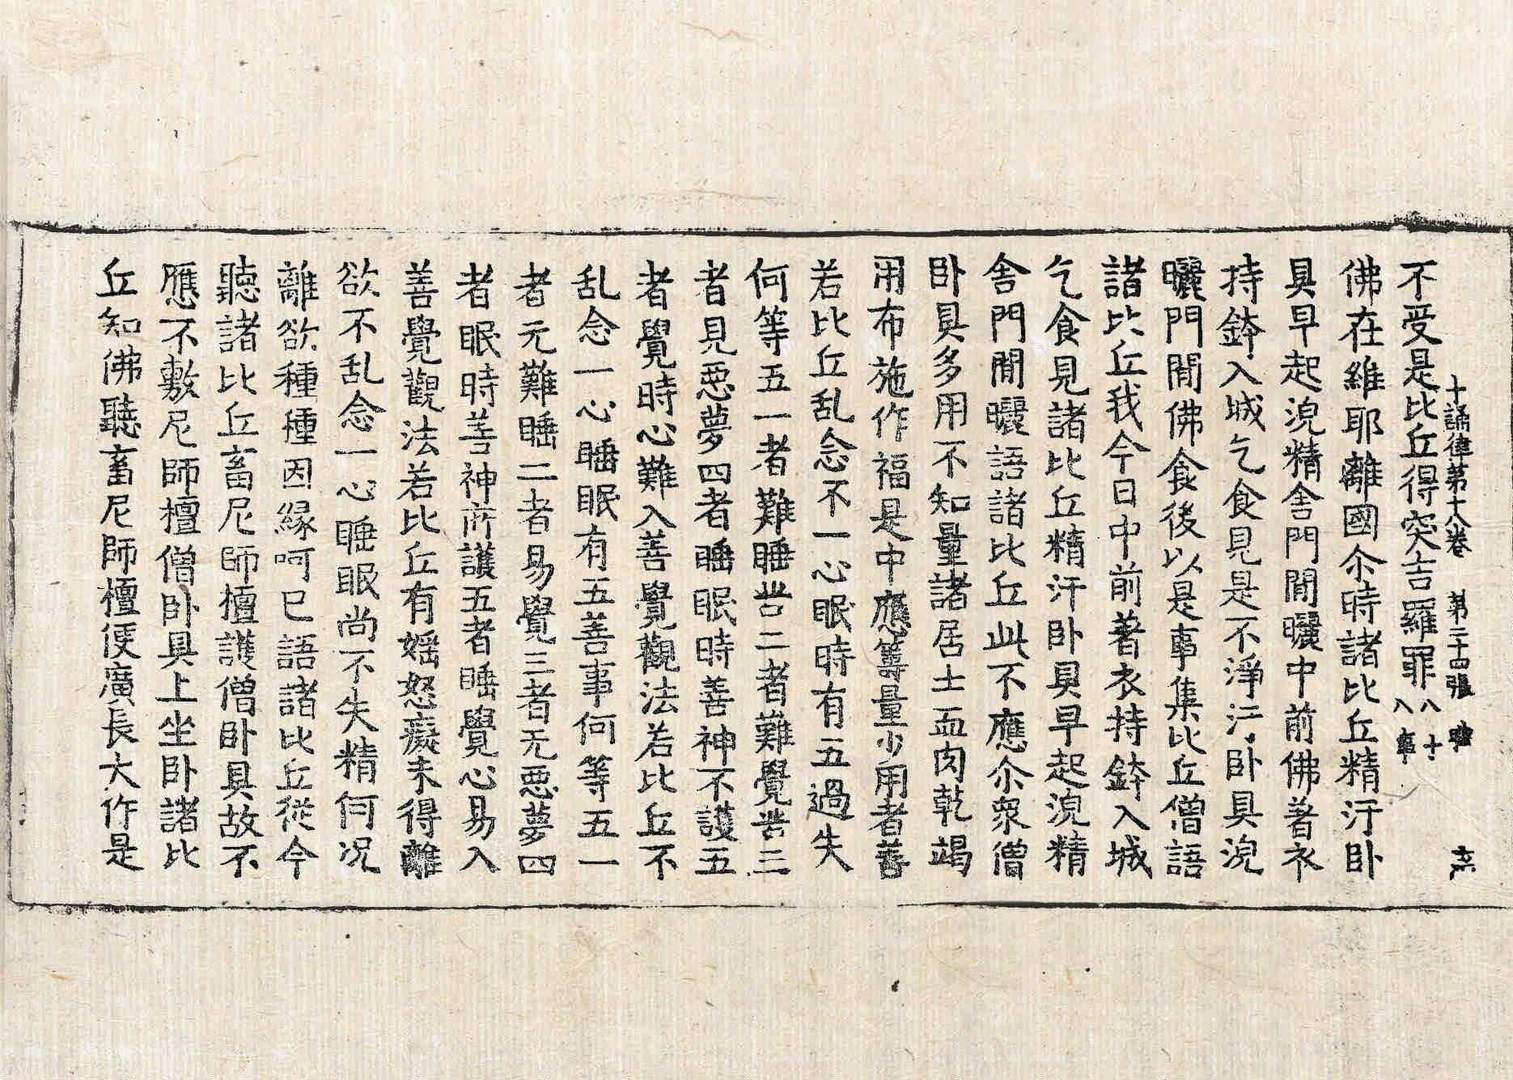 十誦律第十八卷　第二十四張
不受是比丘得突吉羅罪八十八事
佛在維耶離國尒時諸比丘精汙卧
具早起浼精舍門閒曬中前佛著衣
持鉢入城乞食見是不淨汙卧具浼
曬門閒佛食後以是事集比丘僧語
諸比丘我今日中前著衣持鉢入城
乞食見諸比丘精汙卧具早起浼精
舍門閒曬語諸比丘此不應尒衆僧
卧具多用不知量諸居士血肉乾竭
用布施作福是中應籌量少用者善
若比丘乱念不一心眠時有五過失
何等五一者難睡苦二者難覺苦三
者見惡夢四者睡眠時善神不護五
者覺時心難入善覺觀法若比丘不
乱念一心睡眠有五善事何等五一
者无難睡二者易覺三者无惡夢四
者眠時善神所護五者睡覺心易入
善覺觀法若比丘有婬怒癡未得離
欲不乱念一心睡眠尚不失精何况
離欲種種因緣呵已語諸比丘從今
聽諸比丘畜尼師檀護僧卧具故不
應不敷尼師檀僧卧具上坐卧諸比
丘知佛聽畜尼師檀便廣長大作是